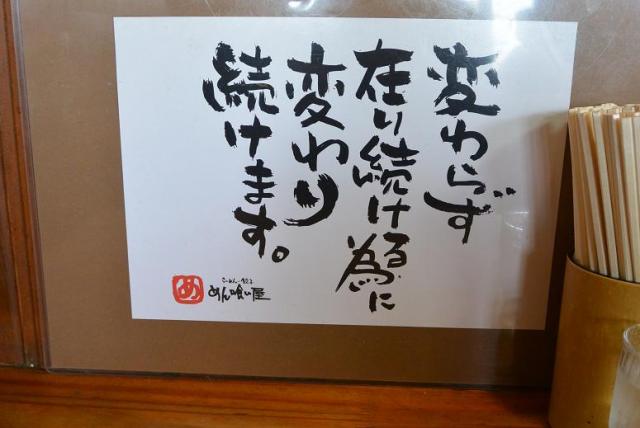 変わらず
在り続ける為に
変わり
続けます。
め
めん喰い屋